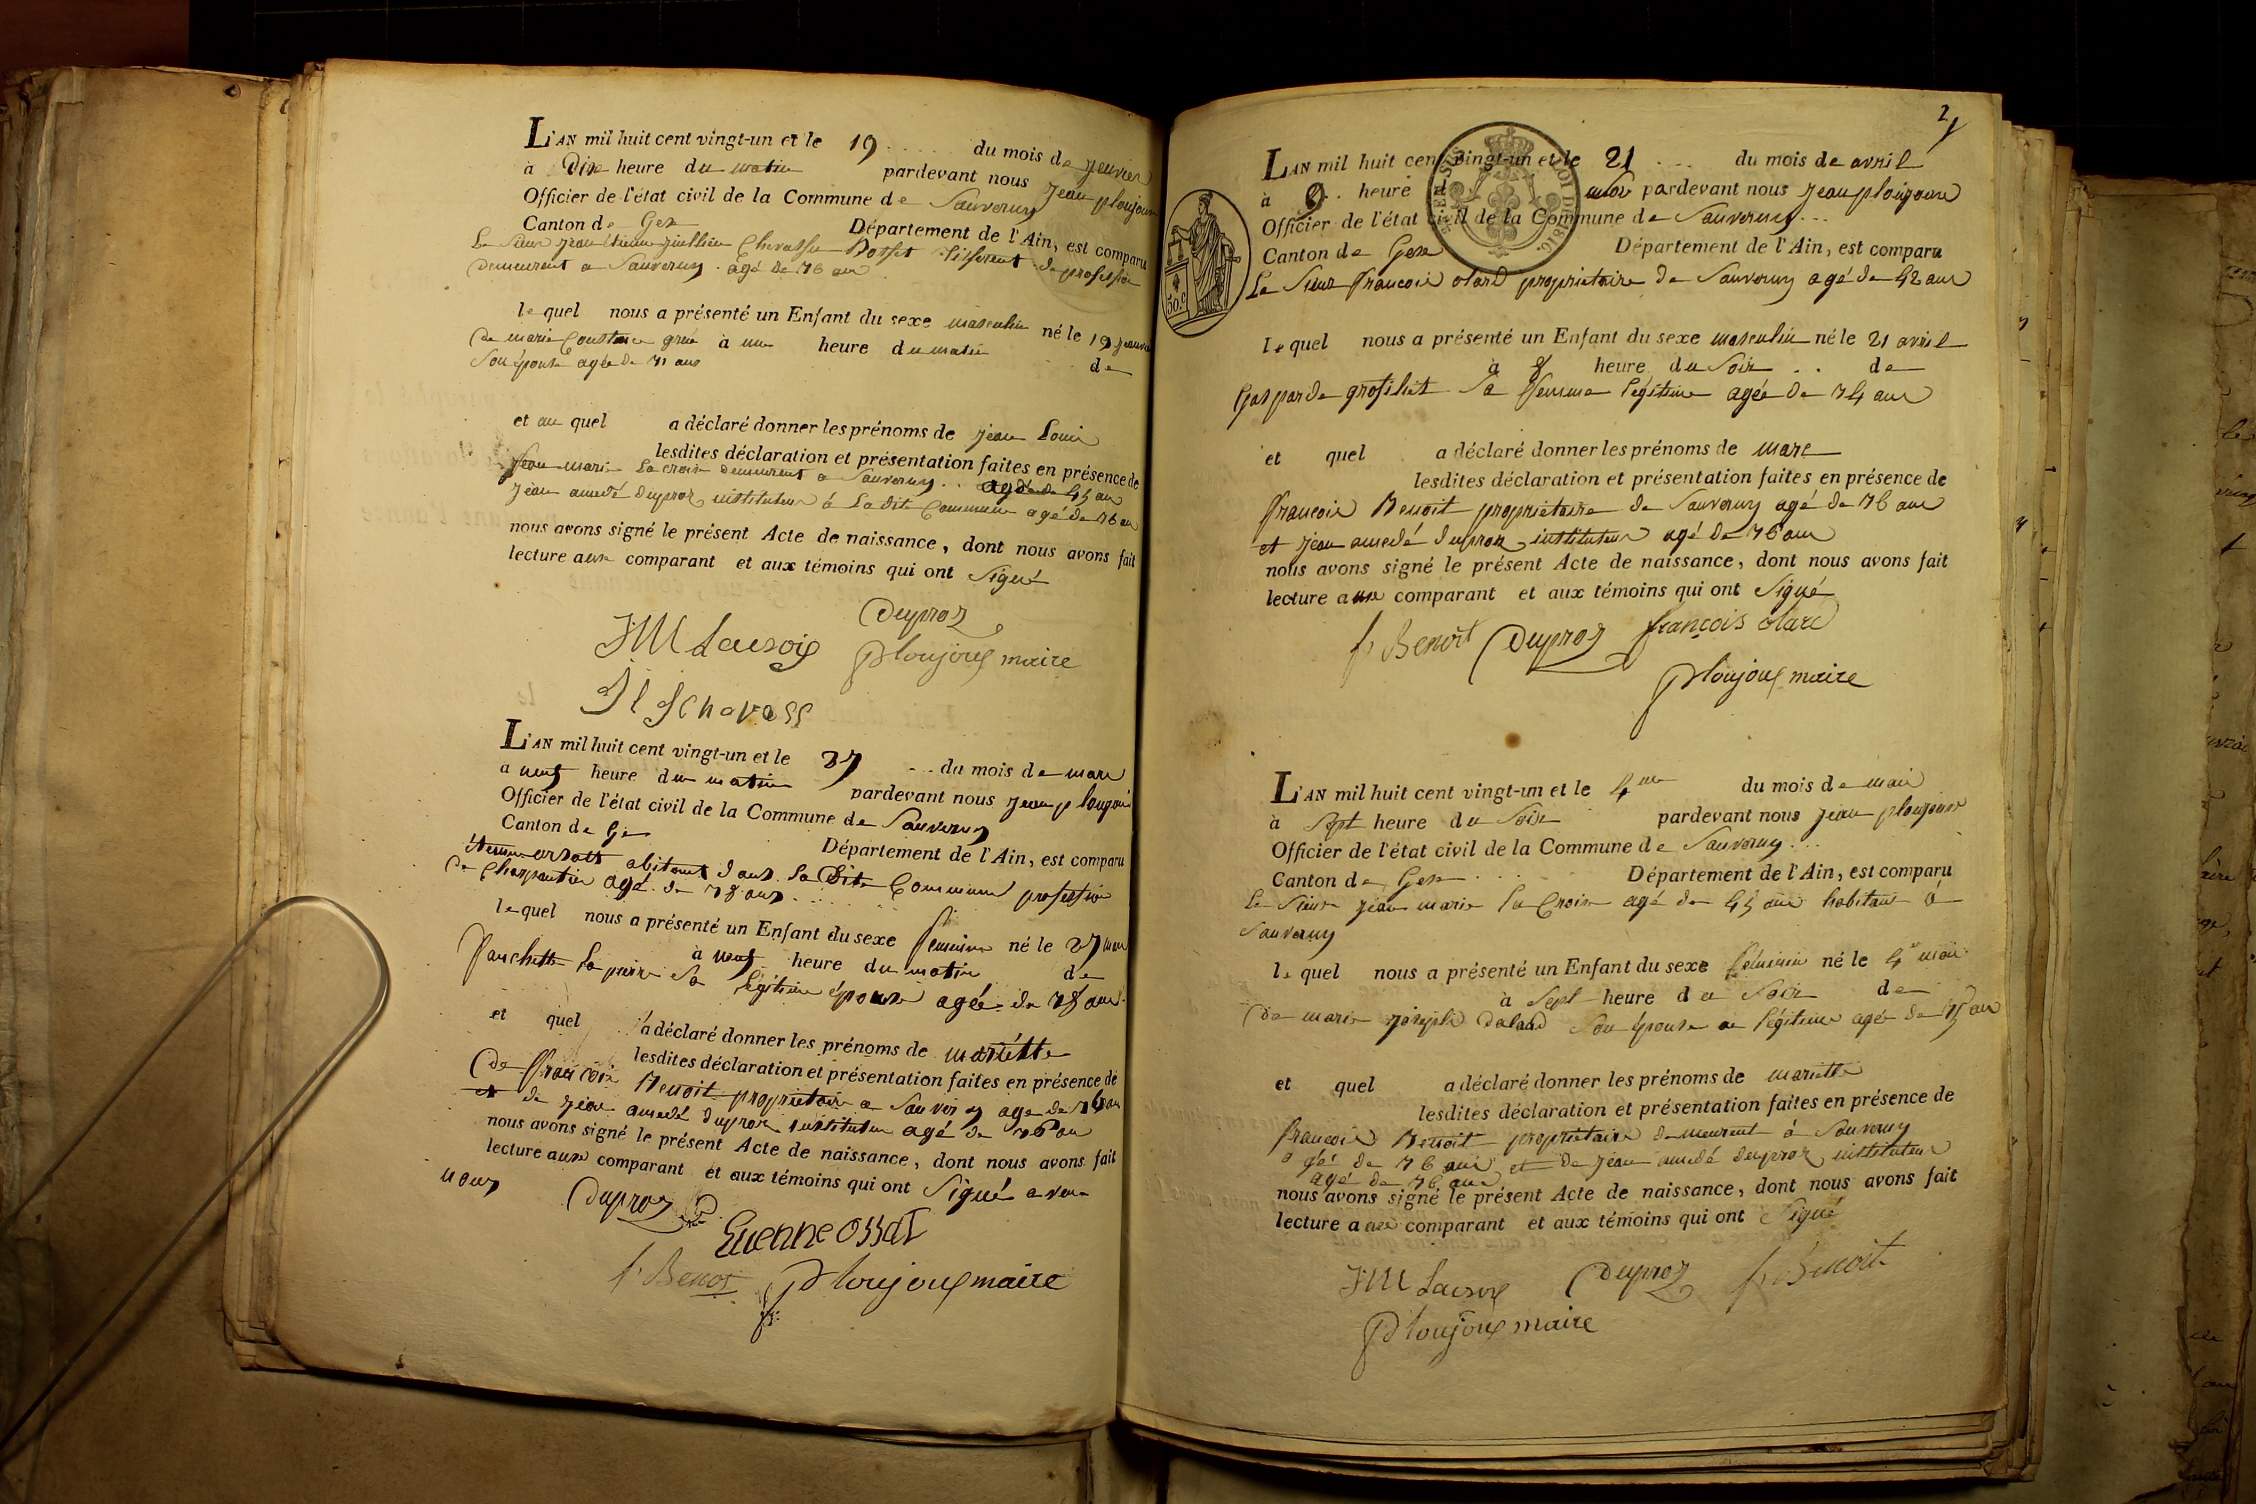 L'AN mil huit cent vingt-un et le 19 du mois de jenvier
à Dix heure du matin pardevant nous Jean ploujoux
Officier de l'état civil de la Commune de Sauverny
Canton de Gex Département de l'Ain, est comparu
Le Sieur Jean Chevassu de profession
Demeurent a Sauverny agé de 36 an
le quel nous a présenté un Enfant du sexe masculin né le 19 jenvier
à une heure du matin de
De marie Constance
Son épouse agée de 31 ans
et au quel a déclaré donner les prénoms de jean Louis
lesdites déclaration et présentation faites en présence de
Jean marie La croix demeurent a Sauverny agé de 45 an
Jean amedé duproz instituteur á La dite Commune agé de 36 an
nous avons signé le présent Acte de naissance, dont nous avons fait
lecture aux comparant et aux témoins qui ont Signé
Duproz
JM Lacroix Ploujoux maire
L'AN mil huit cent vingt-un et le 27 du mois de mars
a neuf heure du matin pardevant nous jean ploujoux
Officier de l'état civil de la Commune de Sauverny
Canton de Gex Département de l'Ain, est comparu
abitent dans La Dite Commune profession
De Charpentier agé de 38 ans
le quel nous a présenté un Enfant du sexe feminin né le 27 mars
à neuf heure du matin de
Sa Légitime épouse agée de 38 ans
et quel a déclaré donner les prénoms de mariette
lesdites déclaration et présentation faites en présence de
De François Benoit propriétaire a Sauverny age de 36 an
et de jean amedé duproz instituteur agé de 36 an
nous avons signé le présent Acte de naissance, dont nous avons fait
lecture aux comparant et aux témoins qui ont Signé avec
nous
Duproz
Etienne Ossat
f. Benoit Ploujoux maire
2
L'AN mil huit cent vingt-un et le 21 du mois de avril
à 9 heure du soir pardevant nous jean ploujoux
Officier de l'état civil de la Commune de Sauverny
Canton de Gex Département de l'Ain, est comparu
Le Sieur François olard propriétaire de Sauverny agé de 42 ans
50.c
ROI DE
1816.
le quel nous a présenté un Enfant du sexe masculin né le 21 avril
à 8 heure du Soir de
Gasparde Sa femme légitime agée de 34 ans
et quel a déclaré donner les prénoms de marc
lesdites déclaration et présentation faites en présence de
François Benoit propriétaire de Sauverny agé de 36 ans
et jean amedé duproz instituteur agé de 36 ans
nous avons signé le présent Acte de naissance, dont nous avons fait
lecture aux comparant et aux témoins qui ont Signé
f. Benoit Duproz françois olard
Ploujoux maire
L'AN mil huit cent vingt-un et le 4me du mois de mai
à Sept heure du Soir pardevant nous jean ploujoux
Officier de l'état civil de la Commune de Sauverny
Canton de Gex Département de l'Ain, est comparu
Le Sieur jean marie La Croix agé de 45 ans habitant á
Sauverny
le quel nous a présenté un Enfant du sexe feminin né le 4e mai
à Sept heure du Soir de
De marie joseph Son épouse légitime agée de
et quel a déclaré donner les prénoms de mariette
lesdites déclaration et présentation faites en présence de
François Benoit propriétaire demeurent á Sauverny
agé de 36 ans et de jean amedé duproz instituteur
agé de 36 ans
nous avons signé le présent Acte de naissance, dont nous avons fait
lecture aux comparant et aux témoins qui ont Signé
JM Lacroix Duproz f. Benoit
Ploujoux maire